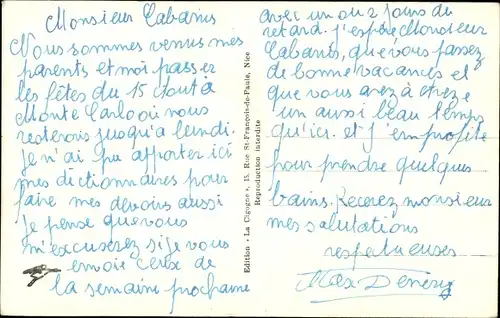 Monsieur Cabanis
Nous sommes venus mes
parents et moi passer
les fêtes du 15 Aout à
Monte Carlo où nous
resterons jusqu'a lundi.
Je n'ai pu apporter ici
mes dictionnaires pour
faire mes devoirs aussi
je pense que vous
m'excuserez si je vous
envoie ceux de
la semaine prochaine
Edition "La Cigogne", 15, Rue St-François-de-Paule, Nice
Reproduction interdite
avec un ou 2 jours de
retard. J'espère, Monsieur
Cabanis, que vous passez
de bonne vacances et
que vous avez à
un aussi beau temps
qu'ici. et j'en profite
pour prendre quelques
bains. Recevez monsieur
mes salutations
respectueuses
Max